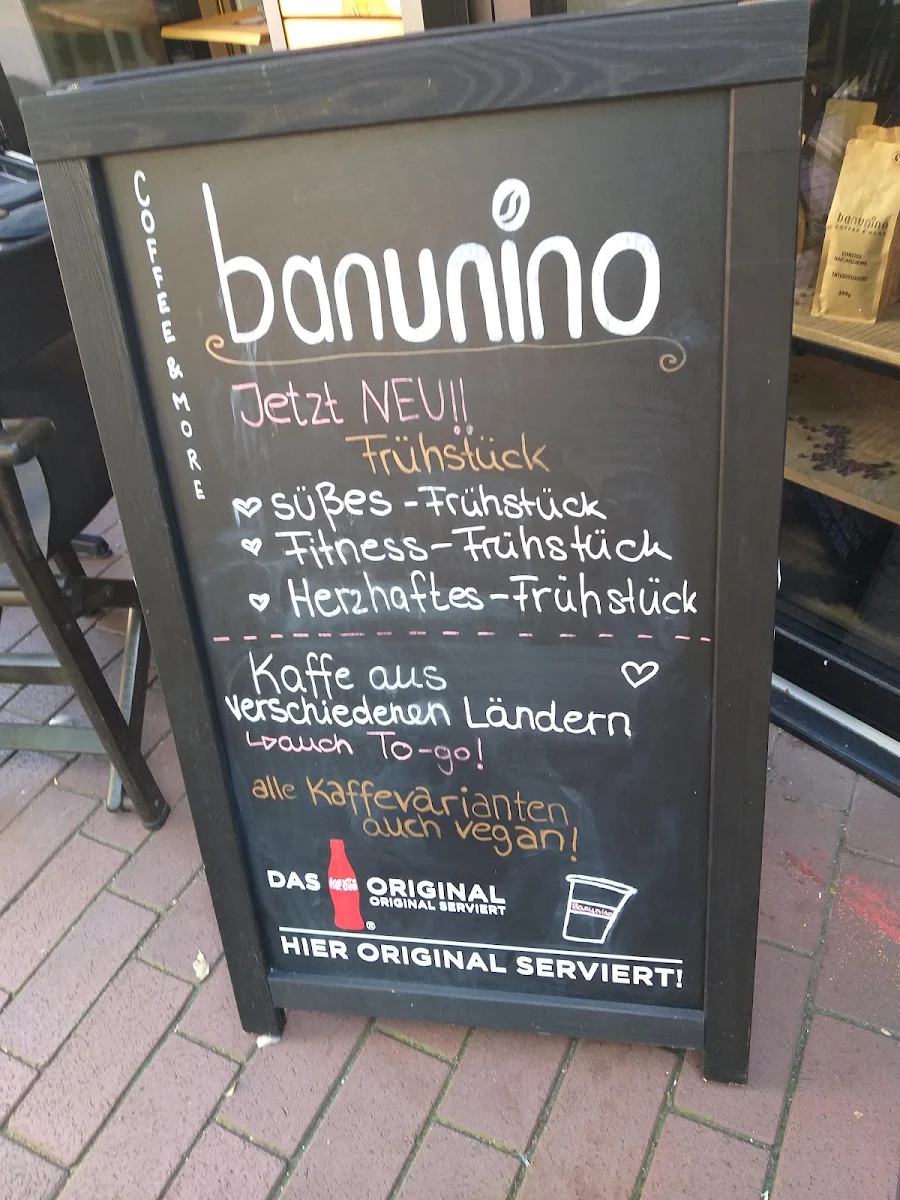 COFFEE & MORE
banunino
Jetzt NEU!!
Frühstück
süßes-Frühstück
Fitness-Frühstück
Herzhaftes-Frühstück
Kaffe aus
verschiedenen Ländern
auch To-go!
alle Kaffevarianten
auch vegan!
DAS Coca-Cola ORIGINAL
ORIGINAL SERVIERT
Banunino
HIER ORIGINAL SERVIERT!
banunino
COFFEE & MORE
ESPRESSO
ENTKOFFEINIERT